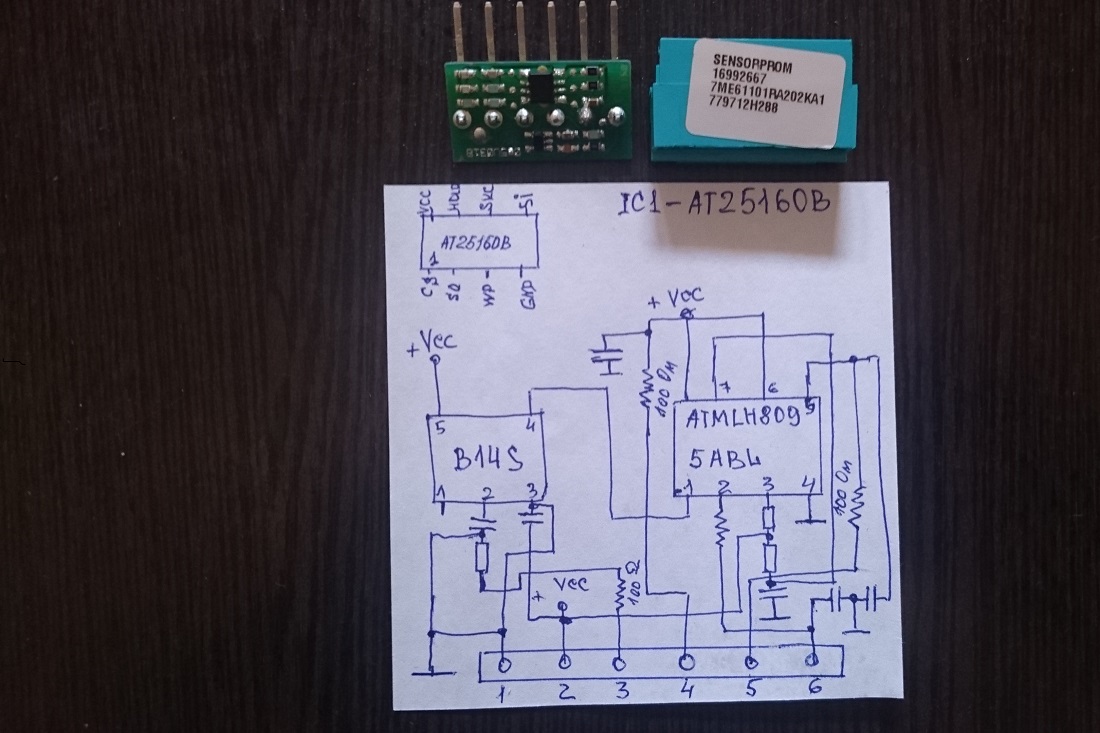 SENSORPROM
16992667
7ME61101RA202KA1
779712H288
IC1-AT25160B
VCC HOLD SI
AT25160B
1
CS SO WP GND
+ Vcc
+ Vcc
100 Ом
7 6 5
5 4
ATMLH809
B14S
5ABL
1 2 3
1 2 3 4
100 Ом
100 Ω
+ Vcc
1 2 3 4 5 6